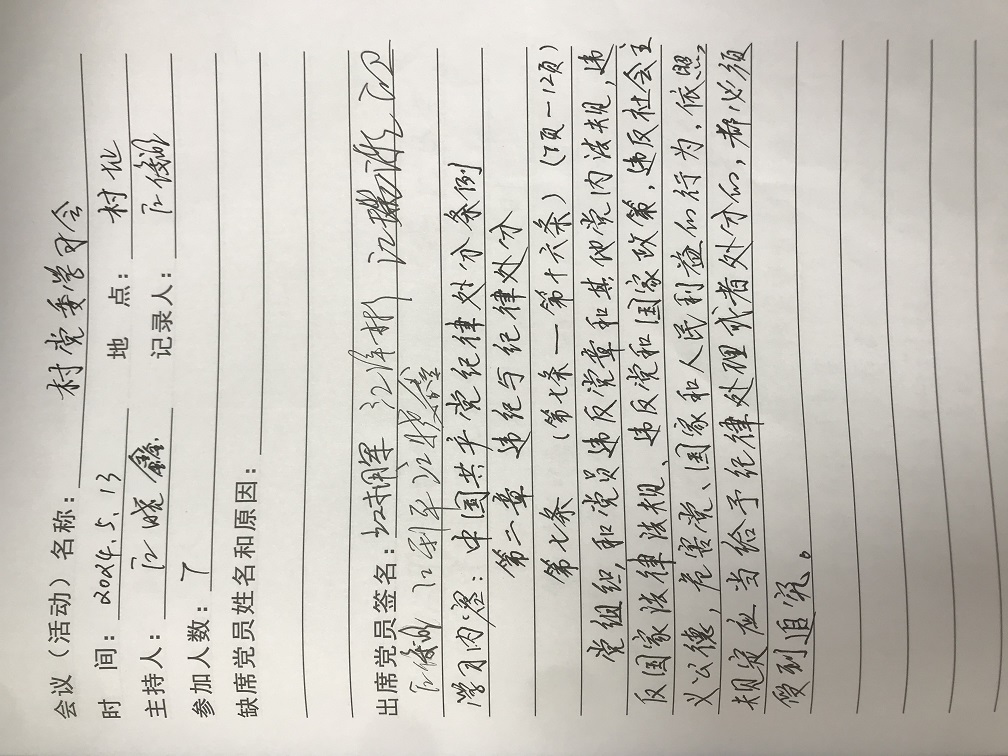 会议（活动）名称：村党委学习会
时 间：2024.5.13 地 点：村址
主持人：江晓鑫 记录人：江俊
参加人数：7
缺席党员姓名和原因：
出席党员签名：江
江俊 江利平 江晓鑫
学习内容：中国共产党纪律处分条例
第二章 违纪与纪律处分
第七条 （第七条—第十六条）（7页—12页）
党组织和党员违反党章和其他党内法规，违
反国家法律法规、违反党和国家政策，违反社会主
义公德，危害党、国家和人民利益的行为，依照
规定应当给予纪律处理或者处分的，都必须
受到追究。